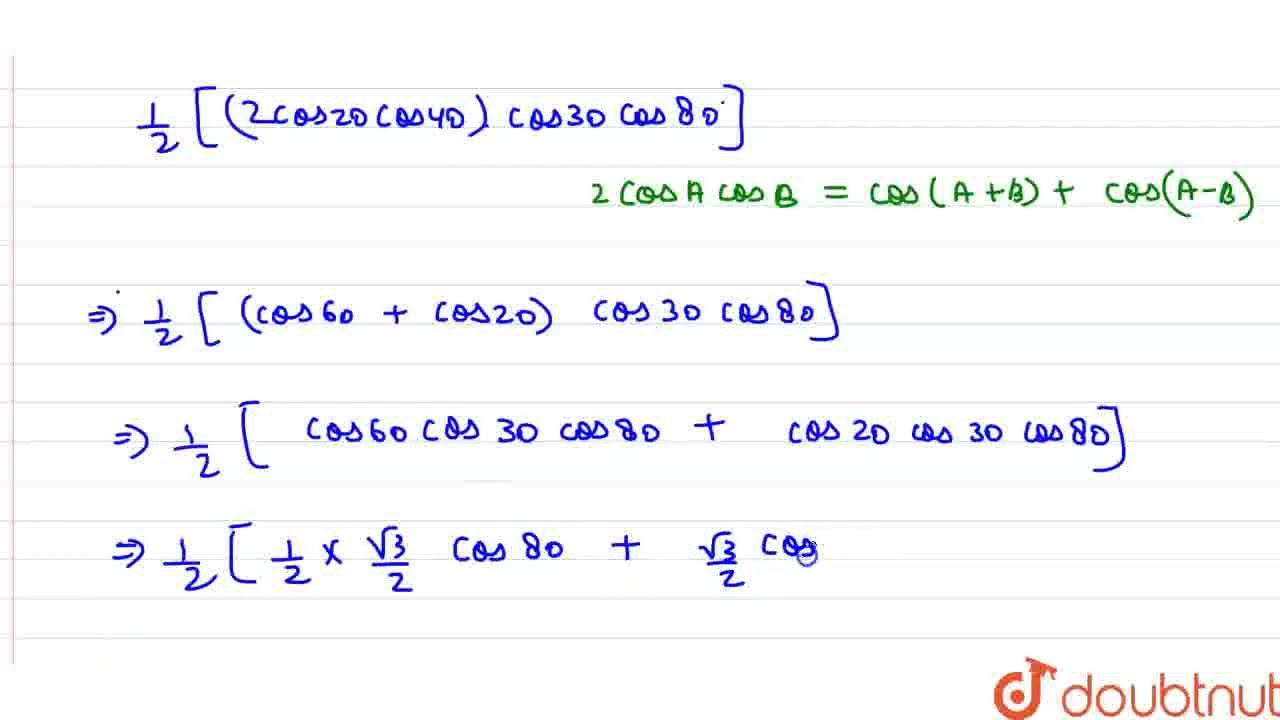 1/2 [(2cos20cos40) cos30 cos80]
2 cosA cosB = cos(A+B) + cos(A-B)
⇒ 1/2 [(cos60 + cos20) cos30 cos80]
⇒ 1/2 [cos60 cos 30 cos80 + cos 20 cos 30 cos80]
⇒ 1/2 [1/2 × √3/2 cos 80 + √3/2 cos
doubtnut